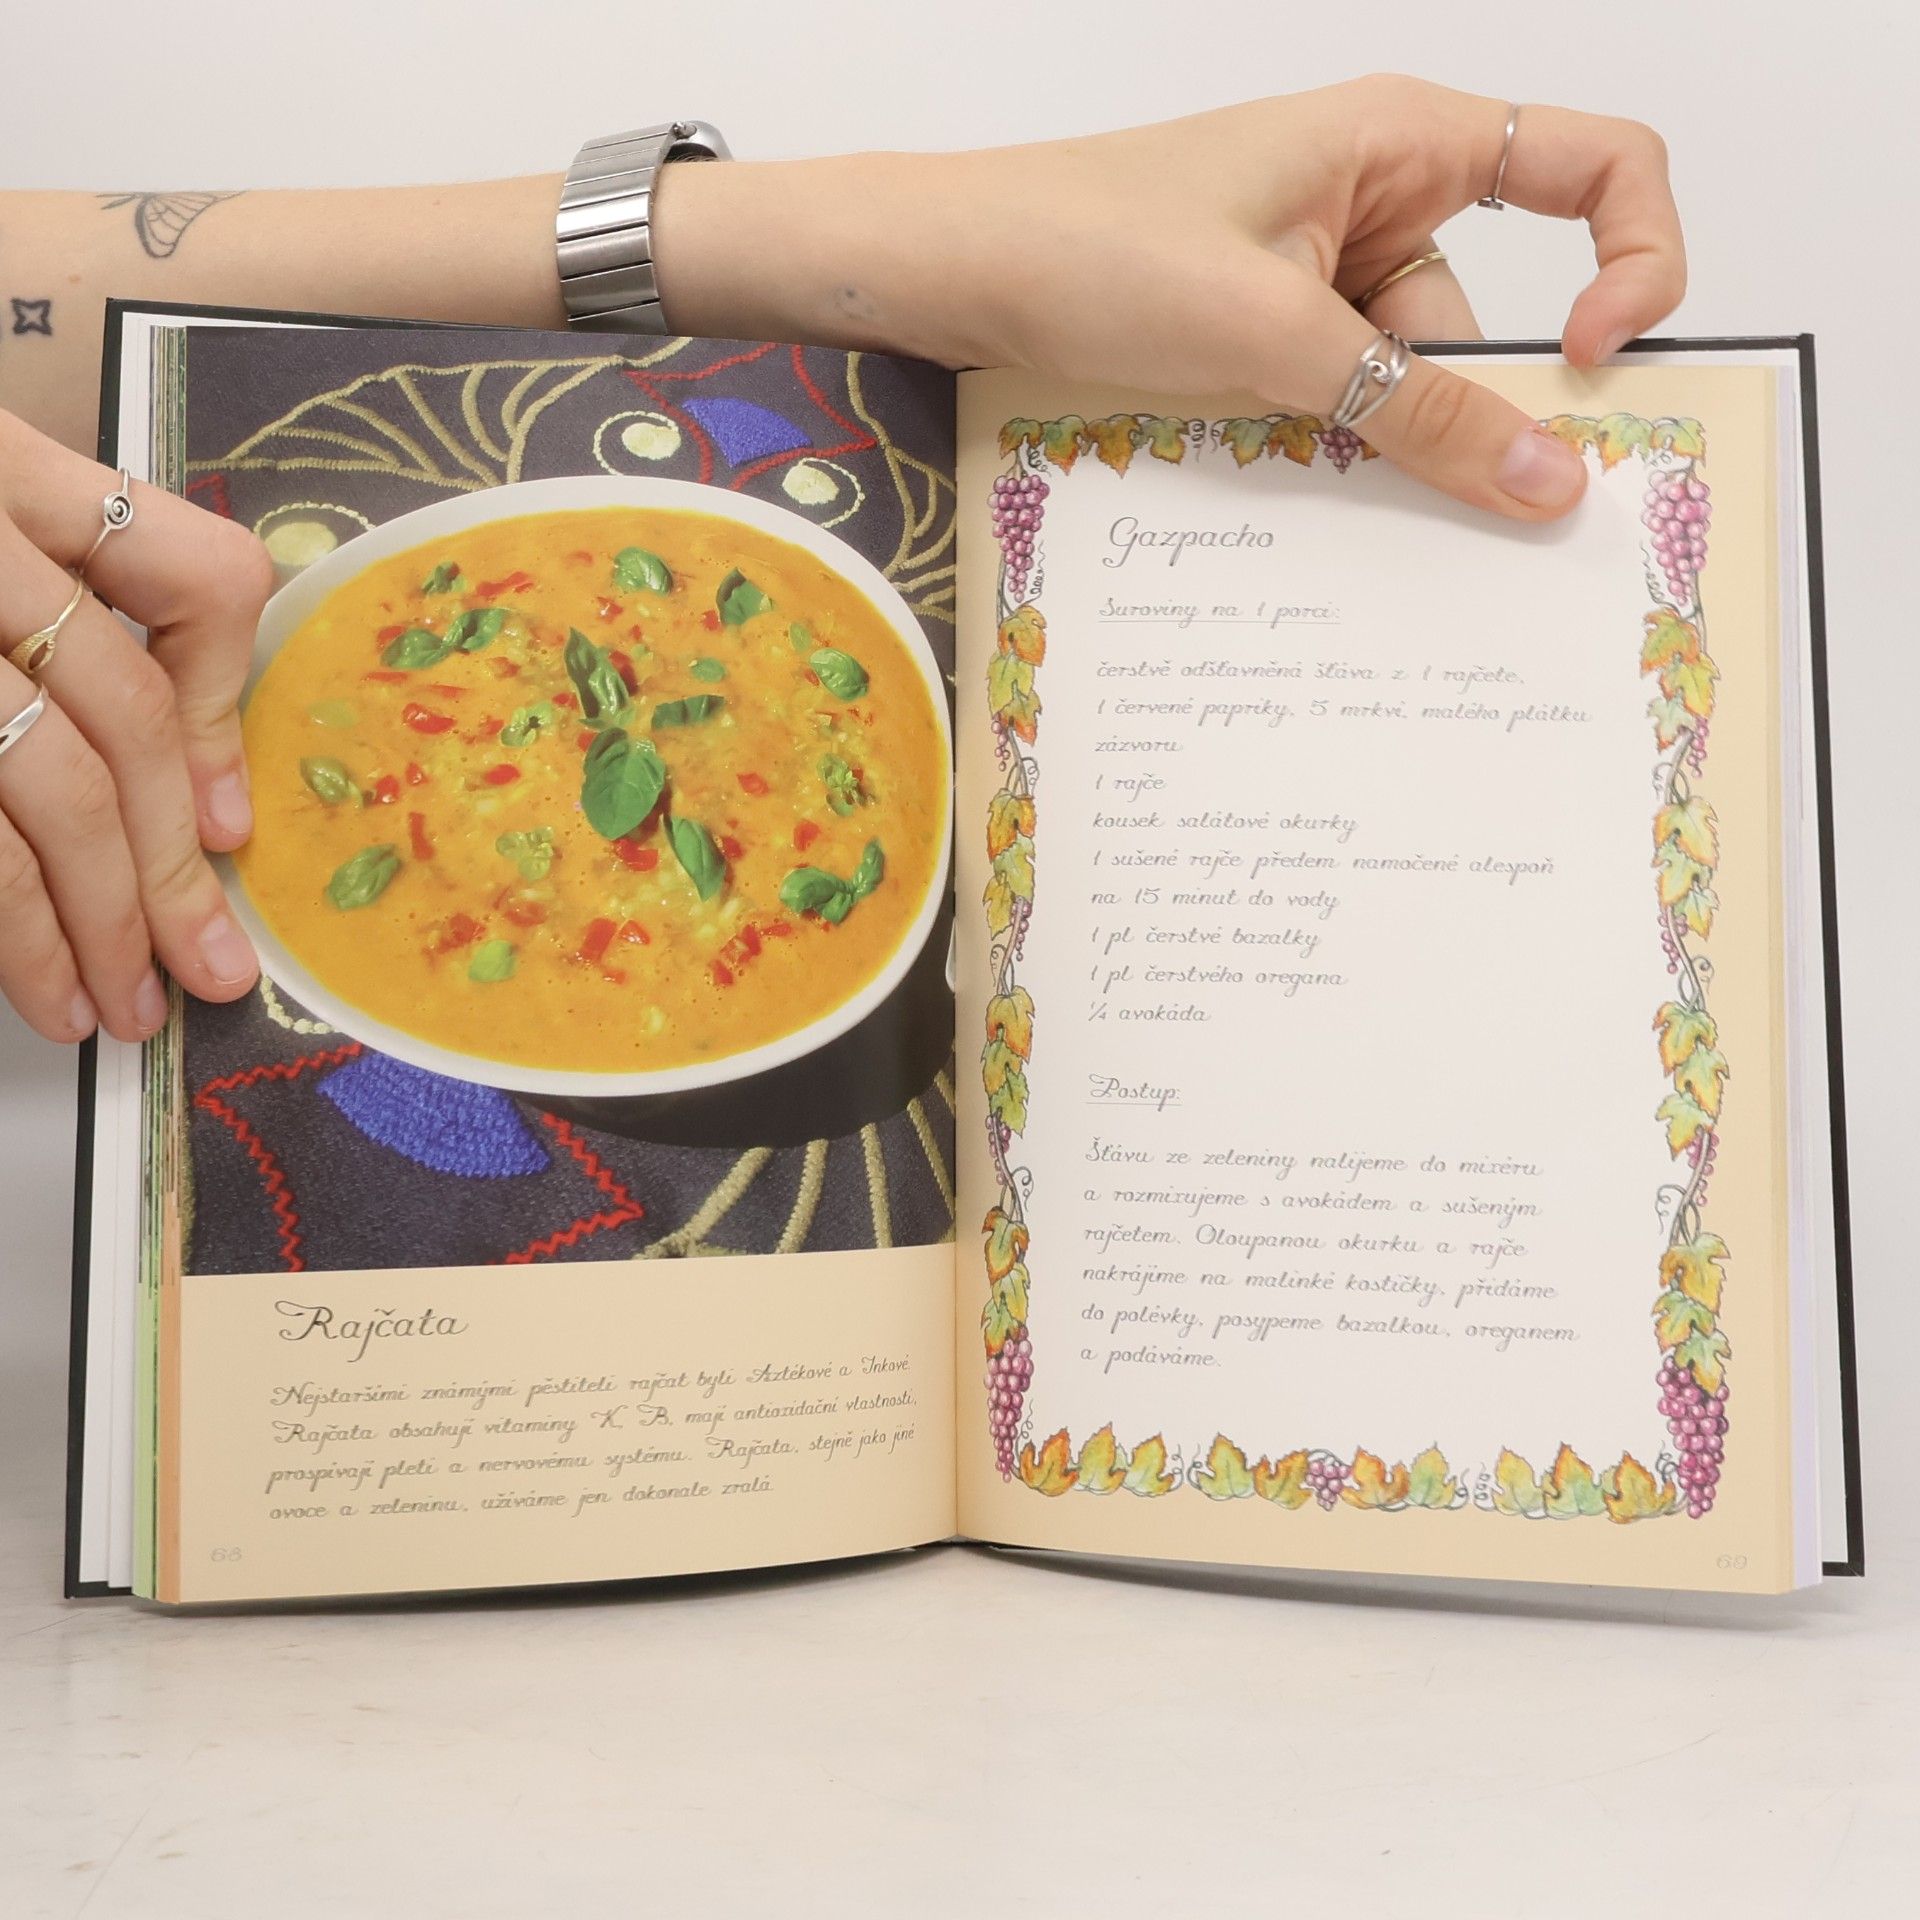 Rajčata
Nejstaršími známými pěstiteli rajčat byli Aztékové a Inkové.
Rajčata obsahují vitaminy K, B, mají antioxidační vlastnosti,
prospívají pleti a nervovému systému. Rajčata, stejně jako jiné
ovoce a zeleninu, užíváme jen dokonale zralá.
68
Gazpacho
Suroviny na 1 porci:
čerstvě odšťavněná šťáva z 1 rajčete,
1 červené papriky, 5 mrkví, malého plátku
zázvoru
1 rajče
kousek salátové okurky
1 sušené rajče předem namočené alespoň
na 15 minut do vody
1 pl čerstvé bazalky
1 pl čerstvého oregana
¼ avokáda
Postup:
Šťávu ze zeleniny nalijeme do mixéru
a rozmixujeme s avokádem a sušeným
rajčetem. Oloupanou okurku a rajče
nakrájíme na malinké kostičky, přidáme
do polévky, posypeme bazalkou, oreganem
a podáváme.
69